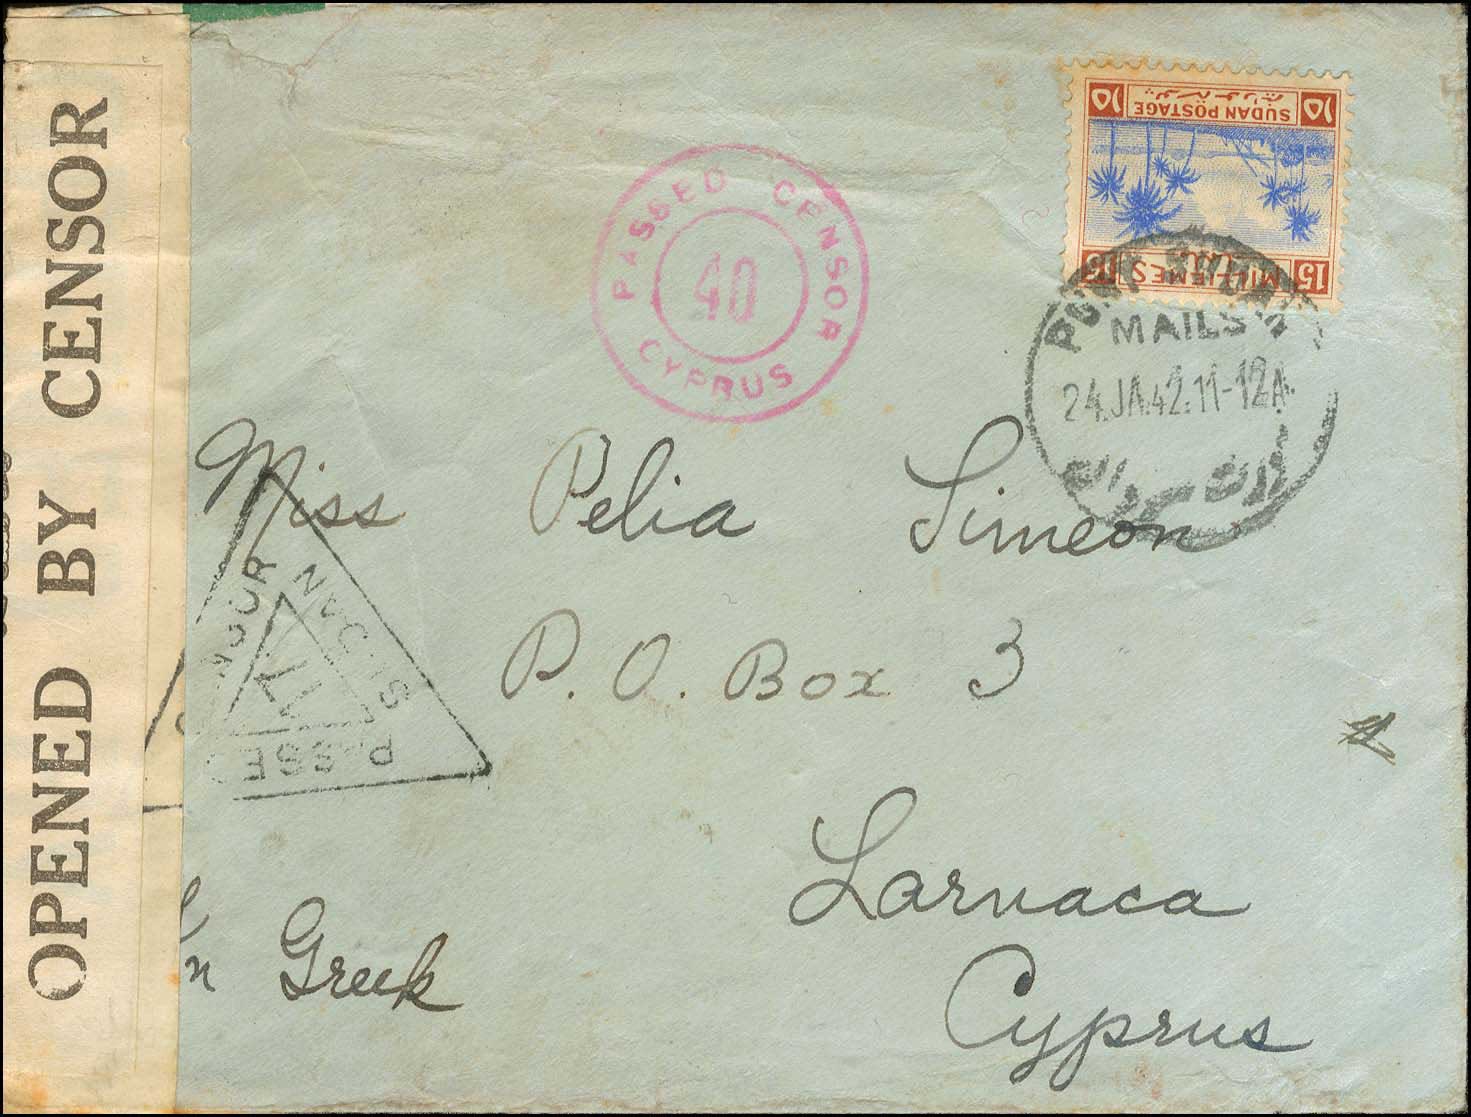 OPENED BY CENSOR
١٥ SUDAN POSTAGE ١٥
15 MILLIEMES 15
PASSED CENSOR
40
CYPRUS
PORT SUDAN
MAILS
24.JA.42.11-12A
Miss Pelia Simeon
P. O. Box 3
Larnaca
Cyprus
In Greek
SUDAN
PASSED